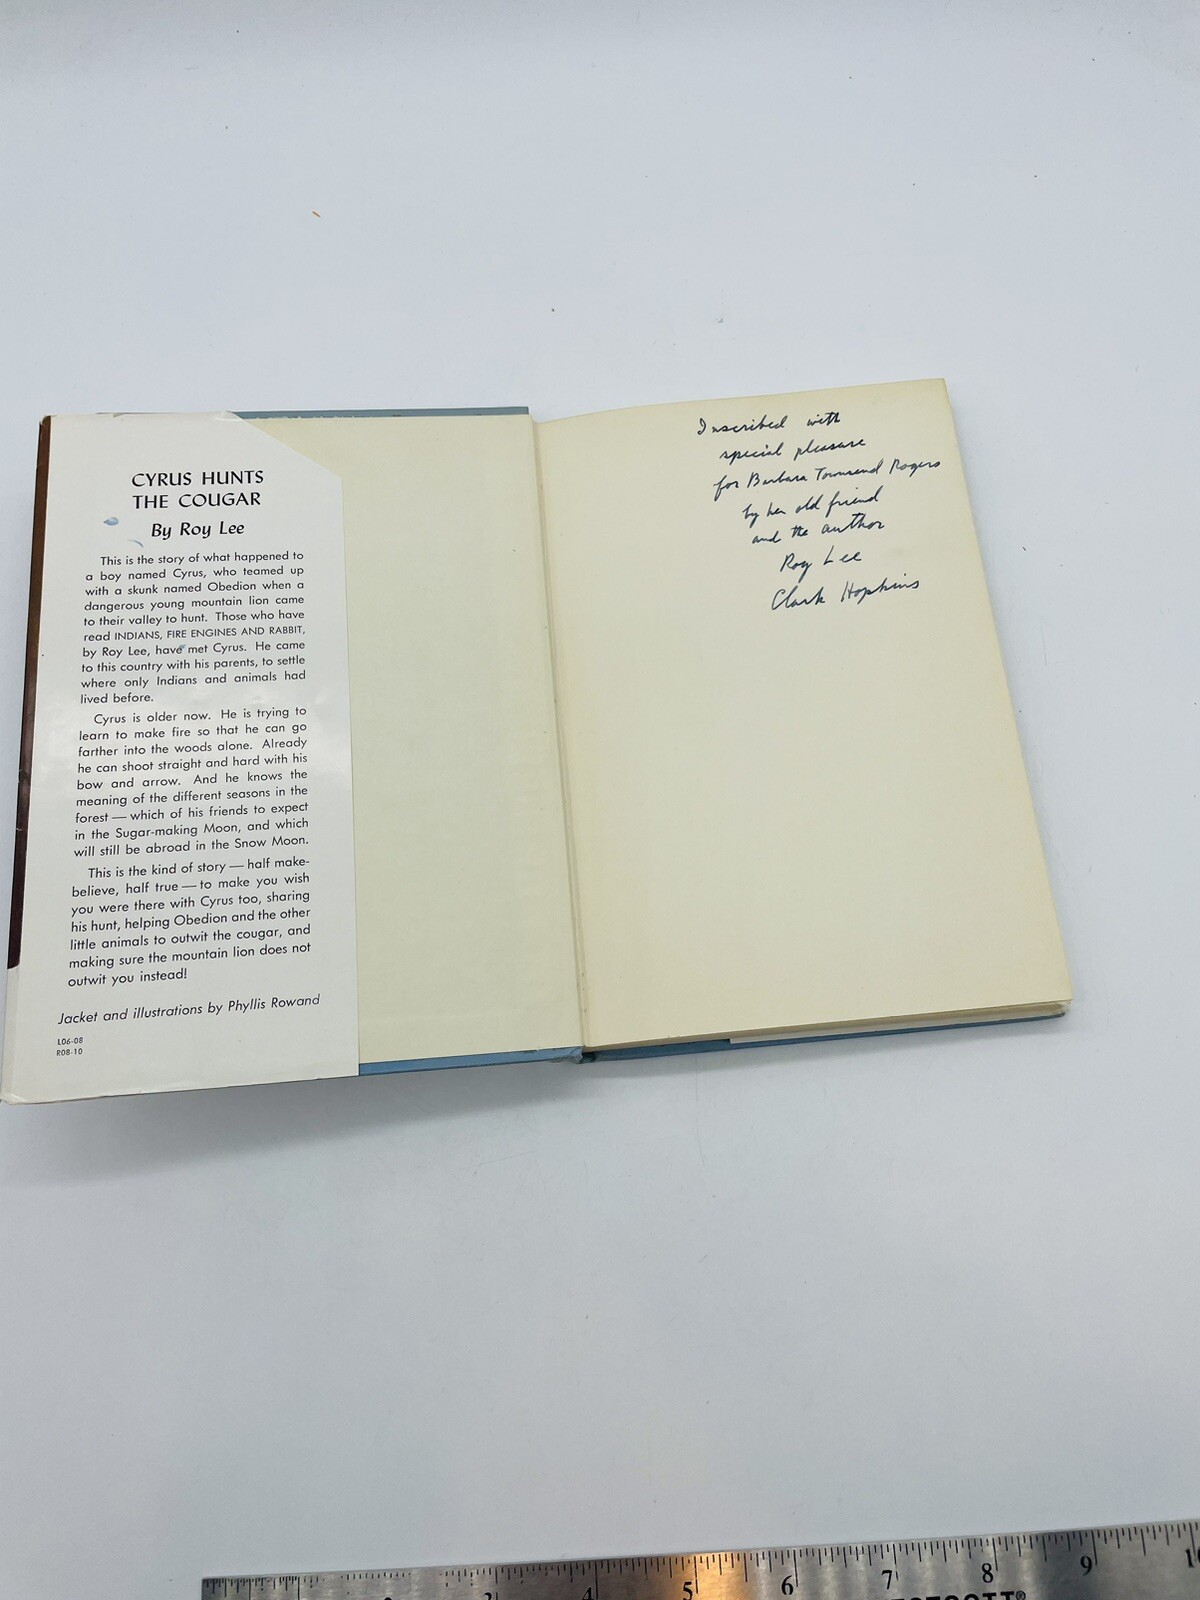 CYRUS HUNTS
THE COUGAR
By Roy Lee
This is the story of what happened to
a boy named Cyrus, who teamed up
with a skunk named Obedion when a
dangerous young mountain lion came
to their valley to hunt. Those who have
read INDIANS, FIRE ENGINES AND RABBIT,
by Roy Lee, have met Cyrus. He came
to this country with his parents, to settle
where only Indians and animals had
lived before.
Cyrus is older now. He is trying to
learn to make fire so that he can go
farther into the woods alone. Already
he can shoot straight and hard with his
bow and arrow. And he knows the
meaning of the different seasons in the
forest — which of his friends to expect
in the Sugar-making Moon, and which
will still be abroad in the Snow Moon.
This is the kind of story — half make-
believe, half true — to make you wish
you were there with Cyrus too, sharing
his hunt, helping Obedion and the other
little animals to outwit the cougar, and
making sure the mountain lion does not
outwit you instead!
Jacket and illustrations by Phyllis Rowand
L06-08
R08-10
Inscribed with
special pleasure
for Barbara Townsend Rogers
by her old friend
and the author
Roy Lee
Clark Hopkins
4 5 6 7 8 9 10